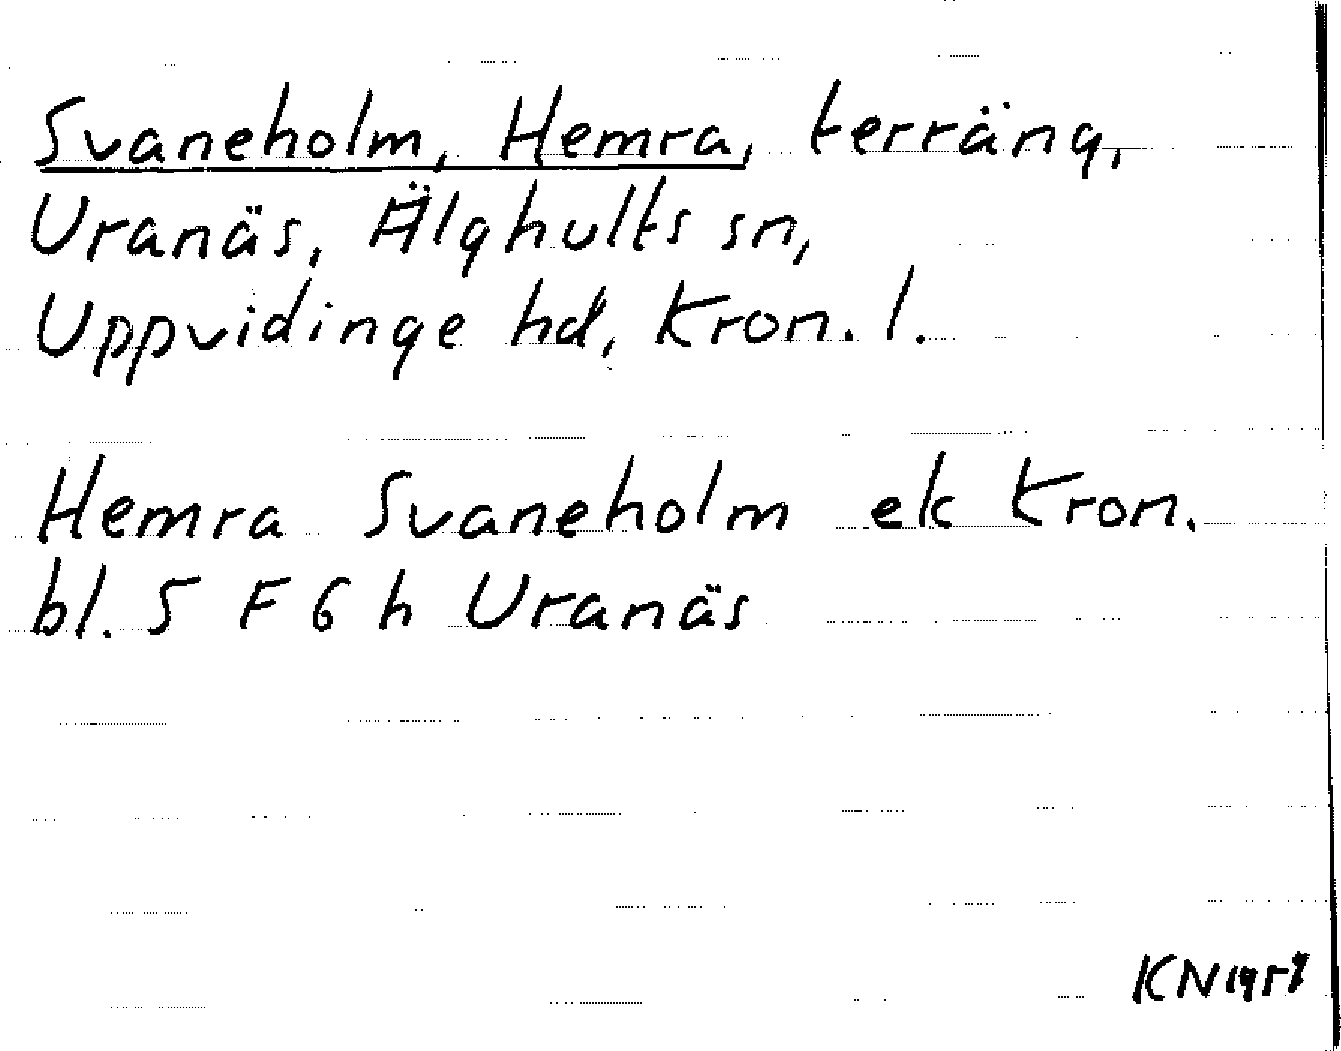 Svaneholm, Hemra, terräng,
Uranäs, Älghults sn,
Uppvidinge hd, Kron. l.
Hemra Svaneholm ek Kron.
bl. 5 F 6 h Uranäs
KN